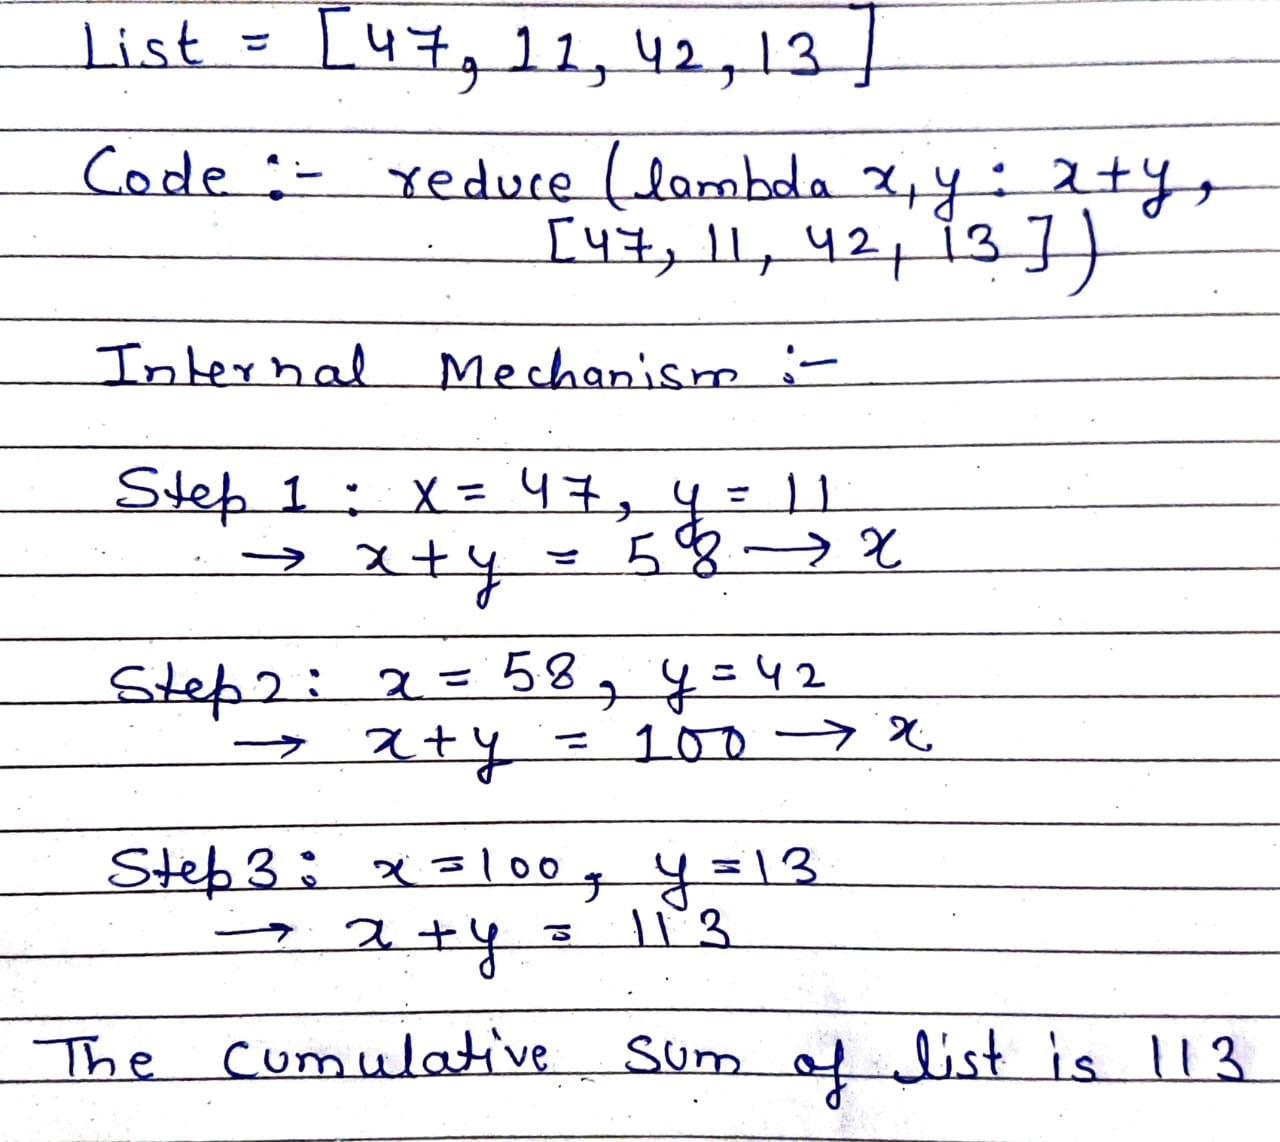 List = [47, 11, 42, 13]
Code :- reduce (lambda x, y : x+y,
[47, 11, 42, 13])
Internal Mechanism :-
Step 1 : x = 47, y = 11
→ x+y = 58 → x
Step 2 : x = 58, y = 42
→ x+y = 100 → x
Step 3 : x = 100, y = 13
→ x+y = 113
The cumulative sum of list is 113